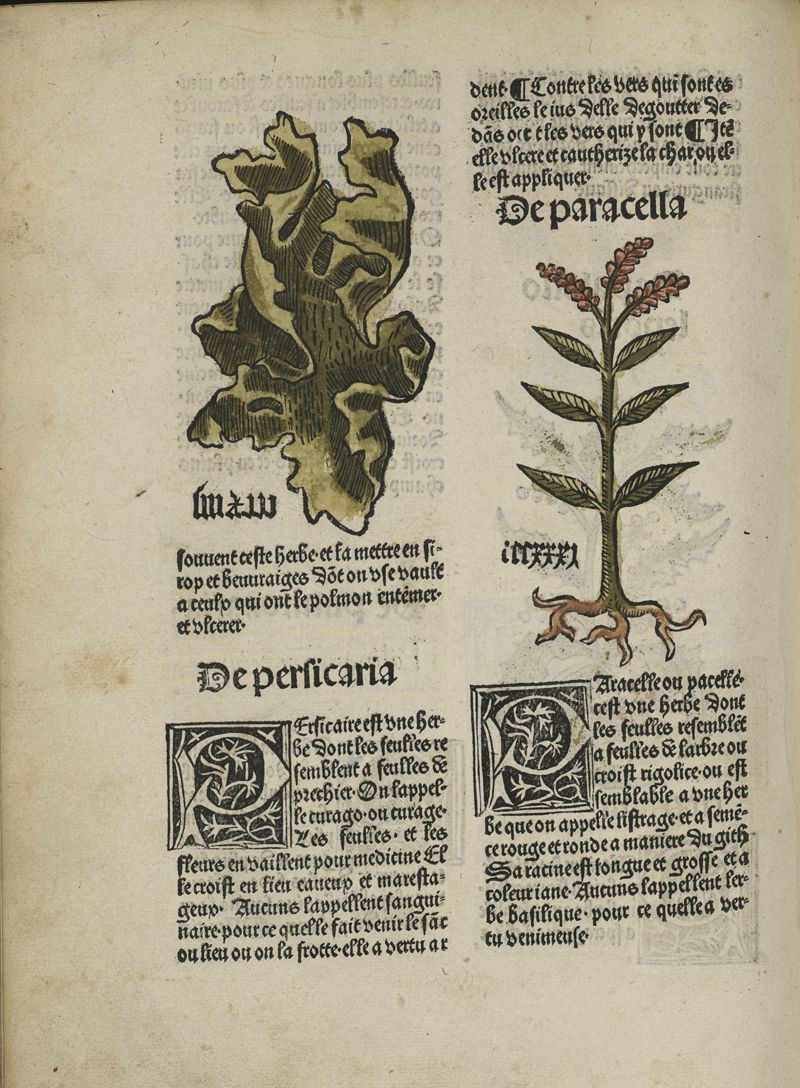 souuent ceste herbe· et la mettre en si-
rop et beuuraiges dõt on vse vault
a ceulx qui ont le polmon entẽmer·
et vlcerer·
De persicaria
PErsicaire est vne her-
be dont les feulles re
semblent a feulles de
preshier· On lappel-
le curago· ou curage·
Les feulles· et les
fleurs en vaillent pour medicine El
le croist en lieu caueux et maresta-
geux· Aucuns lappellent sangui-
naire· pour ce quelle fait venir le sãc
ou lieu ou on la frotte· elle a vertu ar
dent· ¶ Contre les vers qui sont es
oreilles le ius delle degoutter de-
dãs occit les vers qui y sont ¶ Itẽ
elle vlcere et cautherize la char, ou el-
le est appliquer·
De paracella
PAracelle ou pacelle·
cest vne herbe dont
les feulles resemblẽt
a feulles de larbre ou
croist rigolice· ou est
semblable a vne her
be que on appelle listrage· et a semẽ-
ce rouge et ronde a maniere du gith
Sa racine est longue et grosse et a
coleur iane· Aucuns lappellent ler-
be basilique· pour ce quelle a ver-
tu venimeuse·